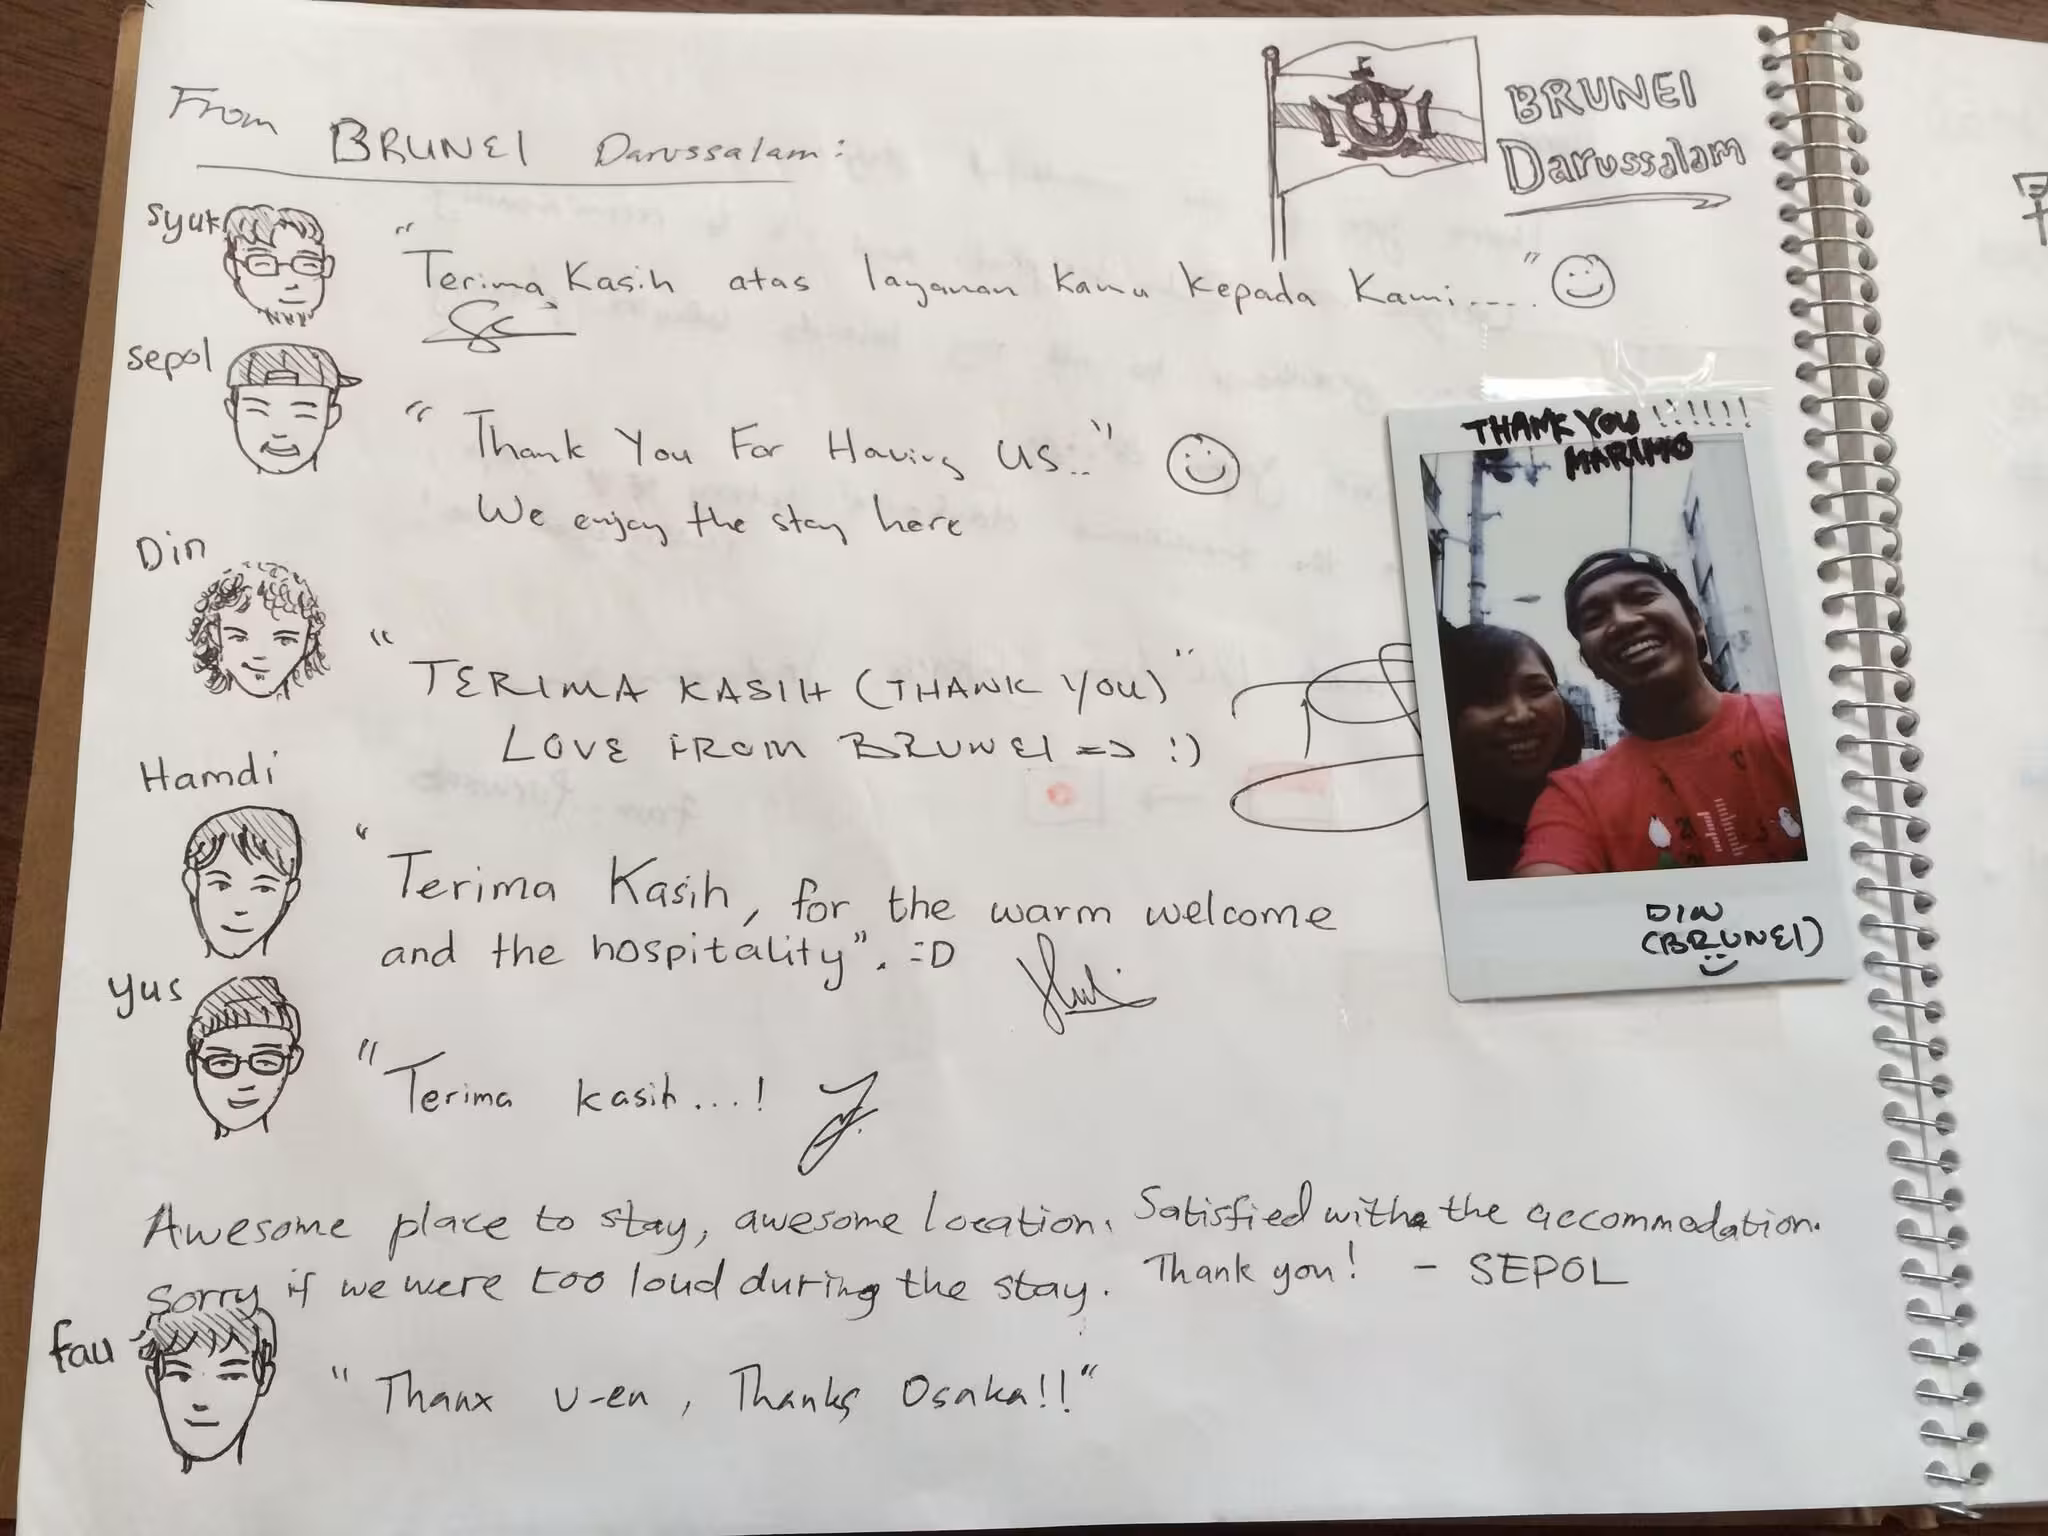 From BRUNEI Darussalam:
BRUNEI
Darussalam
syuk
"Terima Kasih atas layanan kamu kepada Kami....."
sepol
"Thank You For Having US.."
We enjoy the stay here
Din
"TERIMA KASIH (THANK YOU)"
LOVE FROM BRUNEI => :)
Hamdi
"Terima Kasih, for the warm welcome
and the hospitality". =D
yus
"Terima kasih...!
Awesome place to stay, awesome location. Satisfied with the accommodation.
Sorry if we were too loud during the stay. Thank you! - SEPOL
fau
"Thanx U-en, Thanks Osaka!!"
THANK YOU !!!!!!
MARIMO
DIN
(BRUNEI)